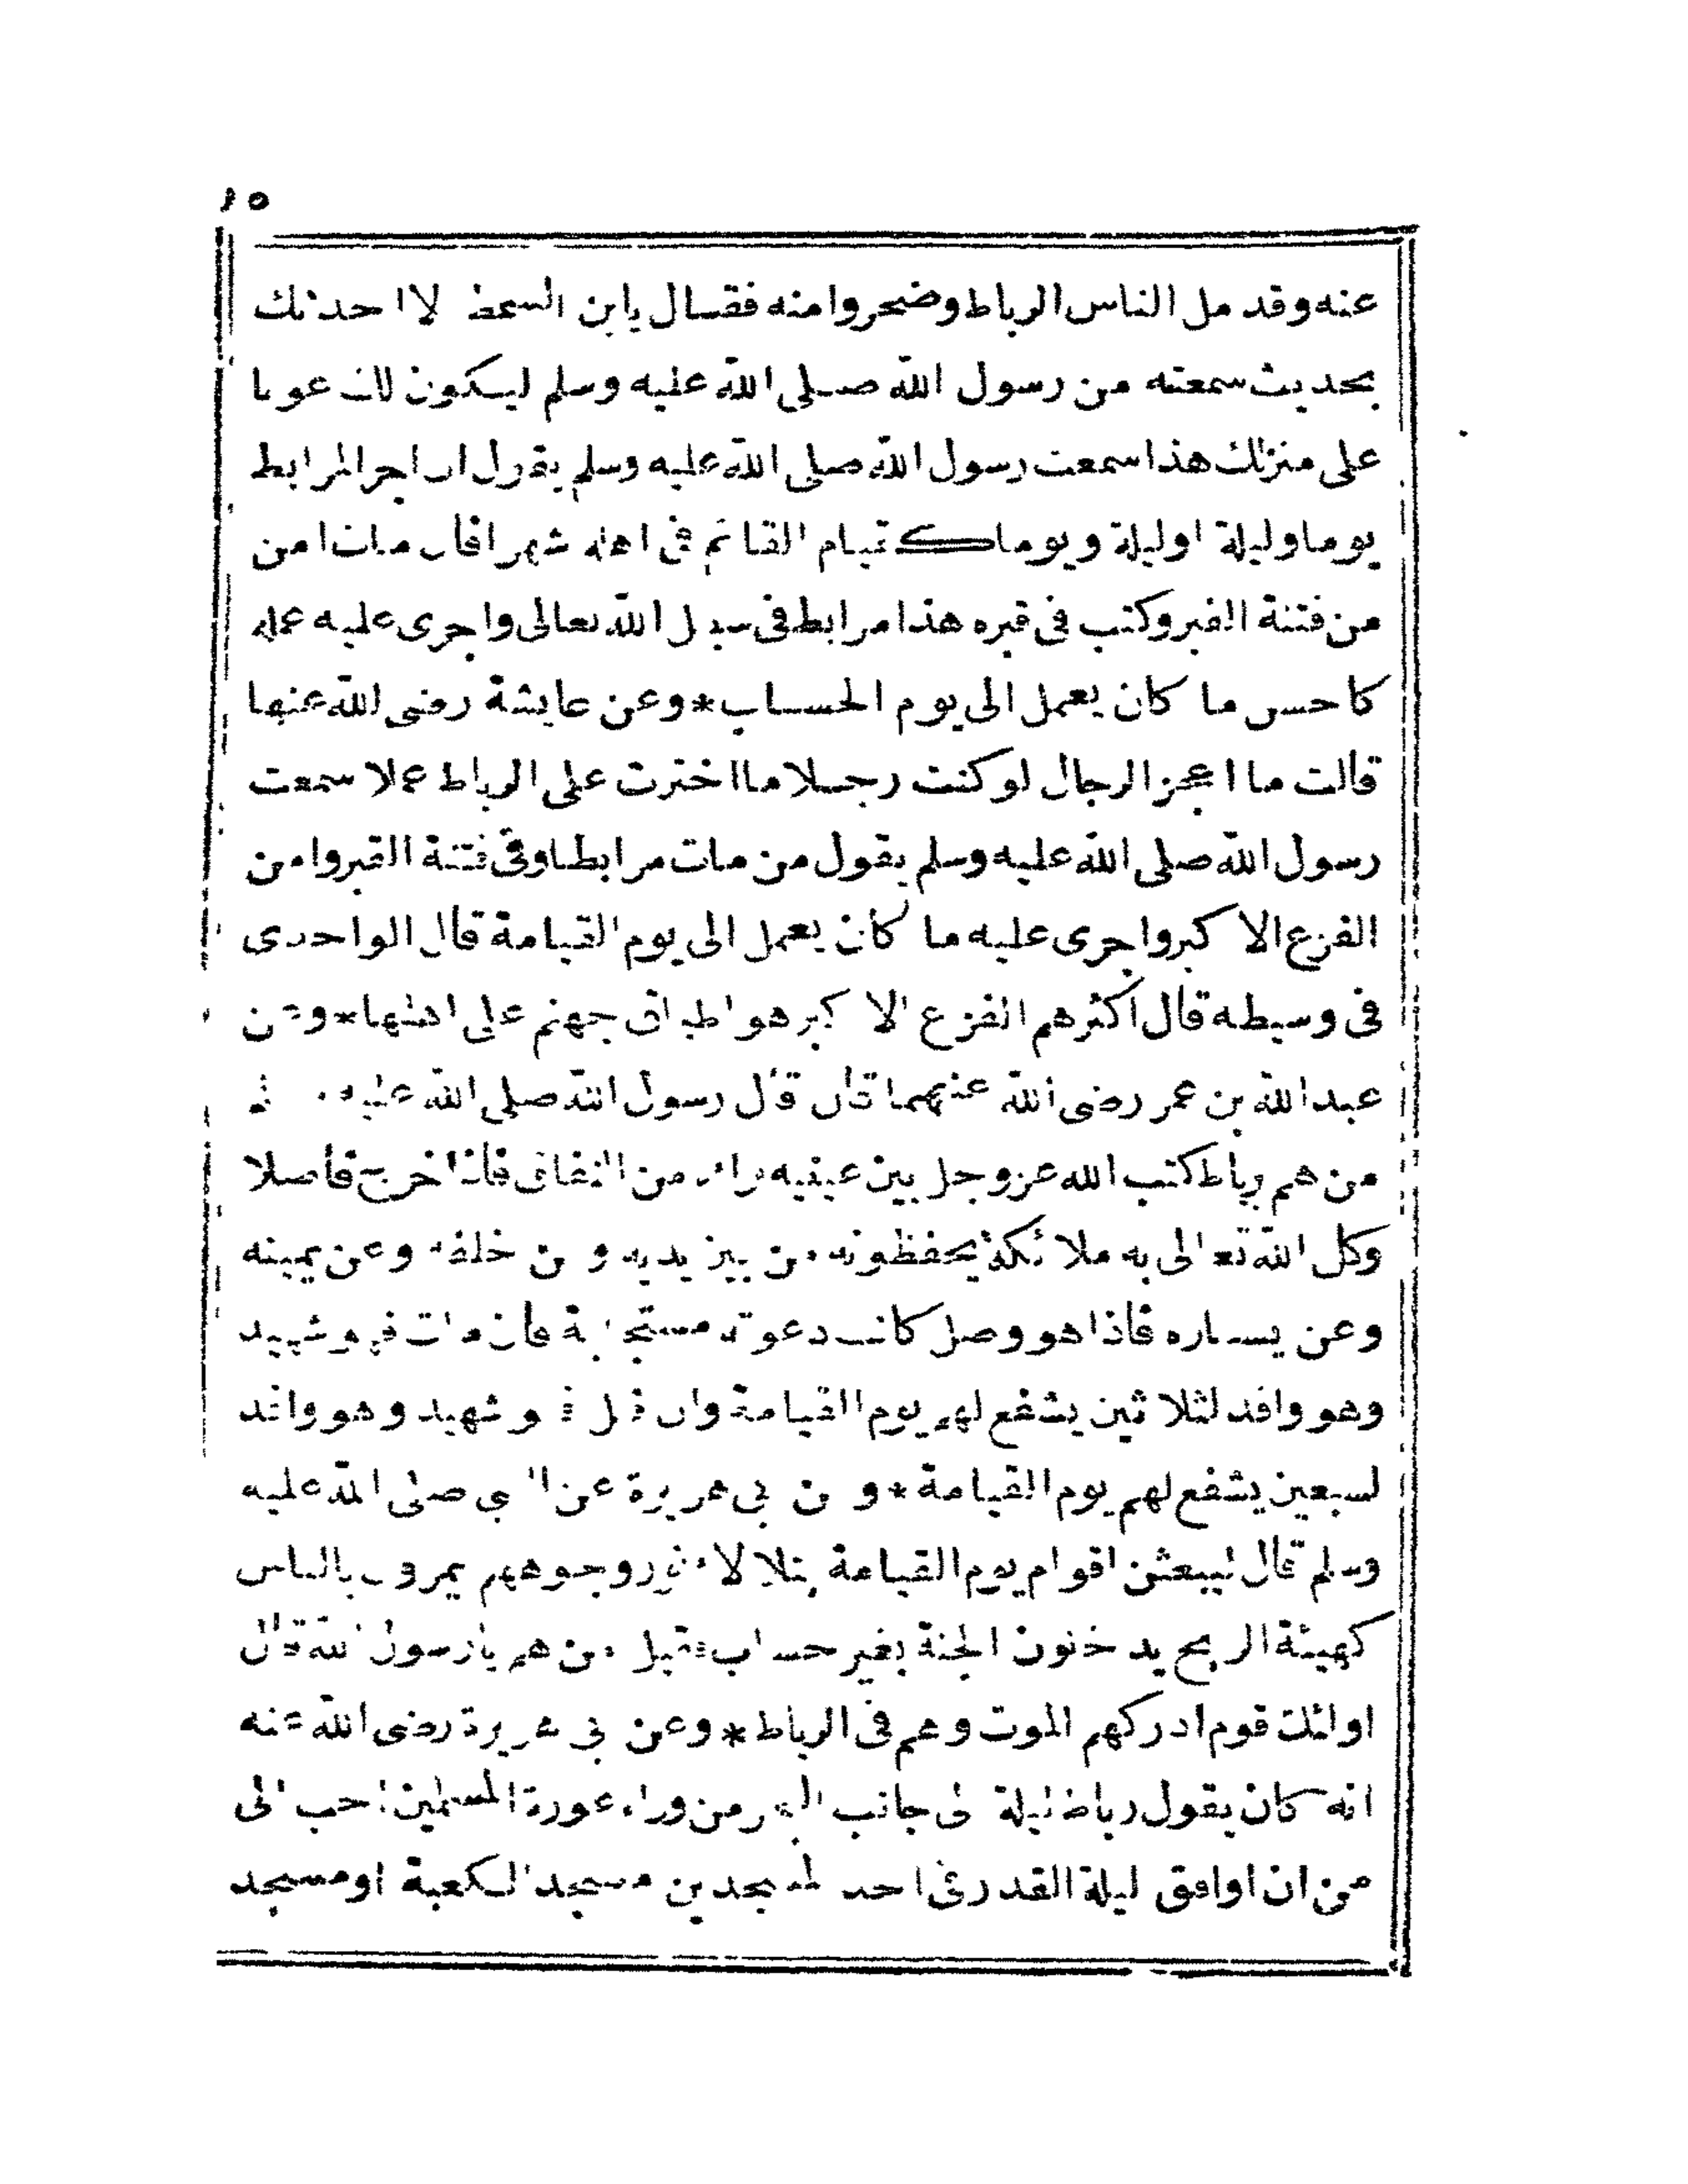 ١٥
عنه وقد مل الناس الرباط وضجروا منه فقال يا ابن السمط لا احدثك
بحديث سمعته من رسول الله صلى الله عليه وسلم ليكون لك عونا
على منزلك هذا سمعت رسول الله صلى الله عليه وسلم يقول ان اجر المرابط
يوما وليلة او ليلة ويوما كقيام القائم فى اهله شهرا فان مات امن
من فتنة القبر وكتب فى قبره هذا مرابط فى سبيل الله تعالى واجرى عليه عمله
كاحسن ما كان يعمل الى يوم الحساب * وعن عايشة رضى الله عنها
قالت ما اعجز الرجال لو كنت رجلا ما اخترت على الرباط عملا سمعت
رسول الله صلى الله عليه وسلم يقول من مات مرابطا وقى فتنة القبر وامن
الفزع الاكبر واجرى عليه ما كان يعمل الى يوم القيامة قال الواحدى
فى وسيطه قال اكثرهم الفزع الاكبر هو اطباق جهنم على اهلها * وعن
عبد الله بن عمر رضى الله عنهما قال قال رسول الله صلى الله عليه
من هم برباط كتب الله عز وجل بين عينيه من النفاق فاذا خرج فاصلا
وكل الله تعالى به ملائكة يحفظونه من بين يديه ومن خلفه وعن يمينه
وعن يساره فاذا هو وصل كانت دعوته مستجابة فان مات فهو شهيد
وهو وافد لثلاثين يشفع لهم يوم القيامة وان قتل فهو شهيد وهو وافد
لسبعين يشفع لهم يوم القيامة * وعن ابى هريرة عن النبى صلى الله عليه
وسلم قال ليبعثن اقوام يوم القيامة يتلالاء نور وجوههم يمرون بالناس
كهيئة الريح يدخلون الجنة بغير حساب فقيل من هم يا رسول الله قال
اولئك قوم ادركهم الموت وهم فى الرباط * وعن ابى هريرة رضى الله عنه
انه كان يقول رباط ليلة الى جانب البحر من وراء عورة المسلمين احب الى
من ان اوافق ليلة القدر فى احد المسجدين مسجد الكعبة او مسجد